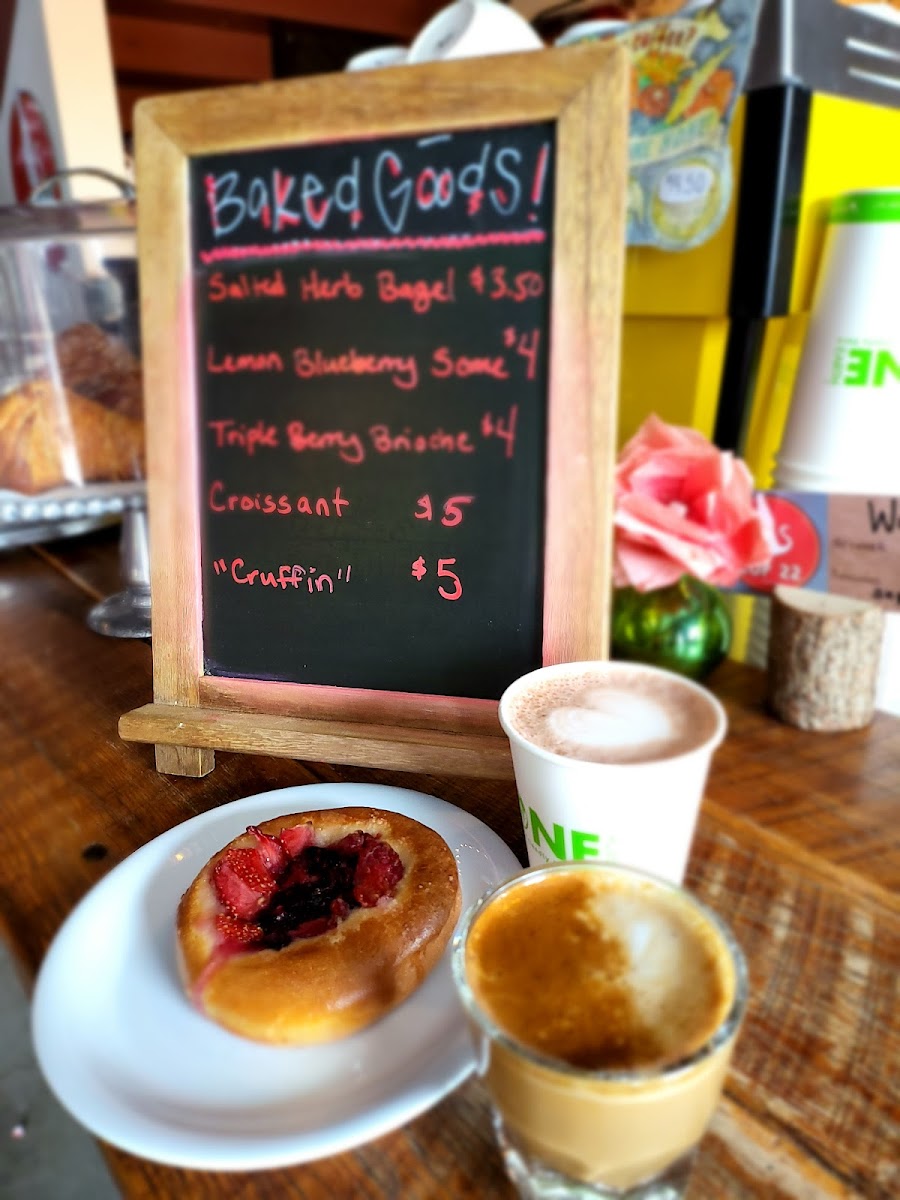 coffee?
Baked Goods!
Salted Herb Bagel $3.50
Lemon Blueberry Some $4
Triple Berry Brioche $4
Croissant $5
"Cruffin" $5
$4.50
NE
22
W
NE